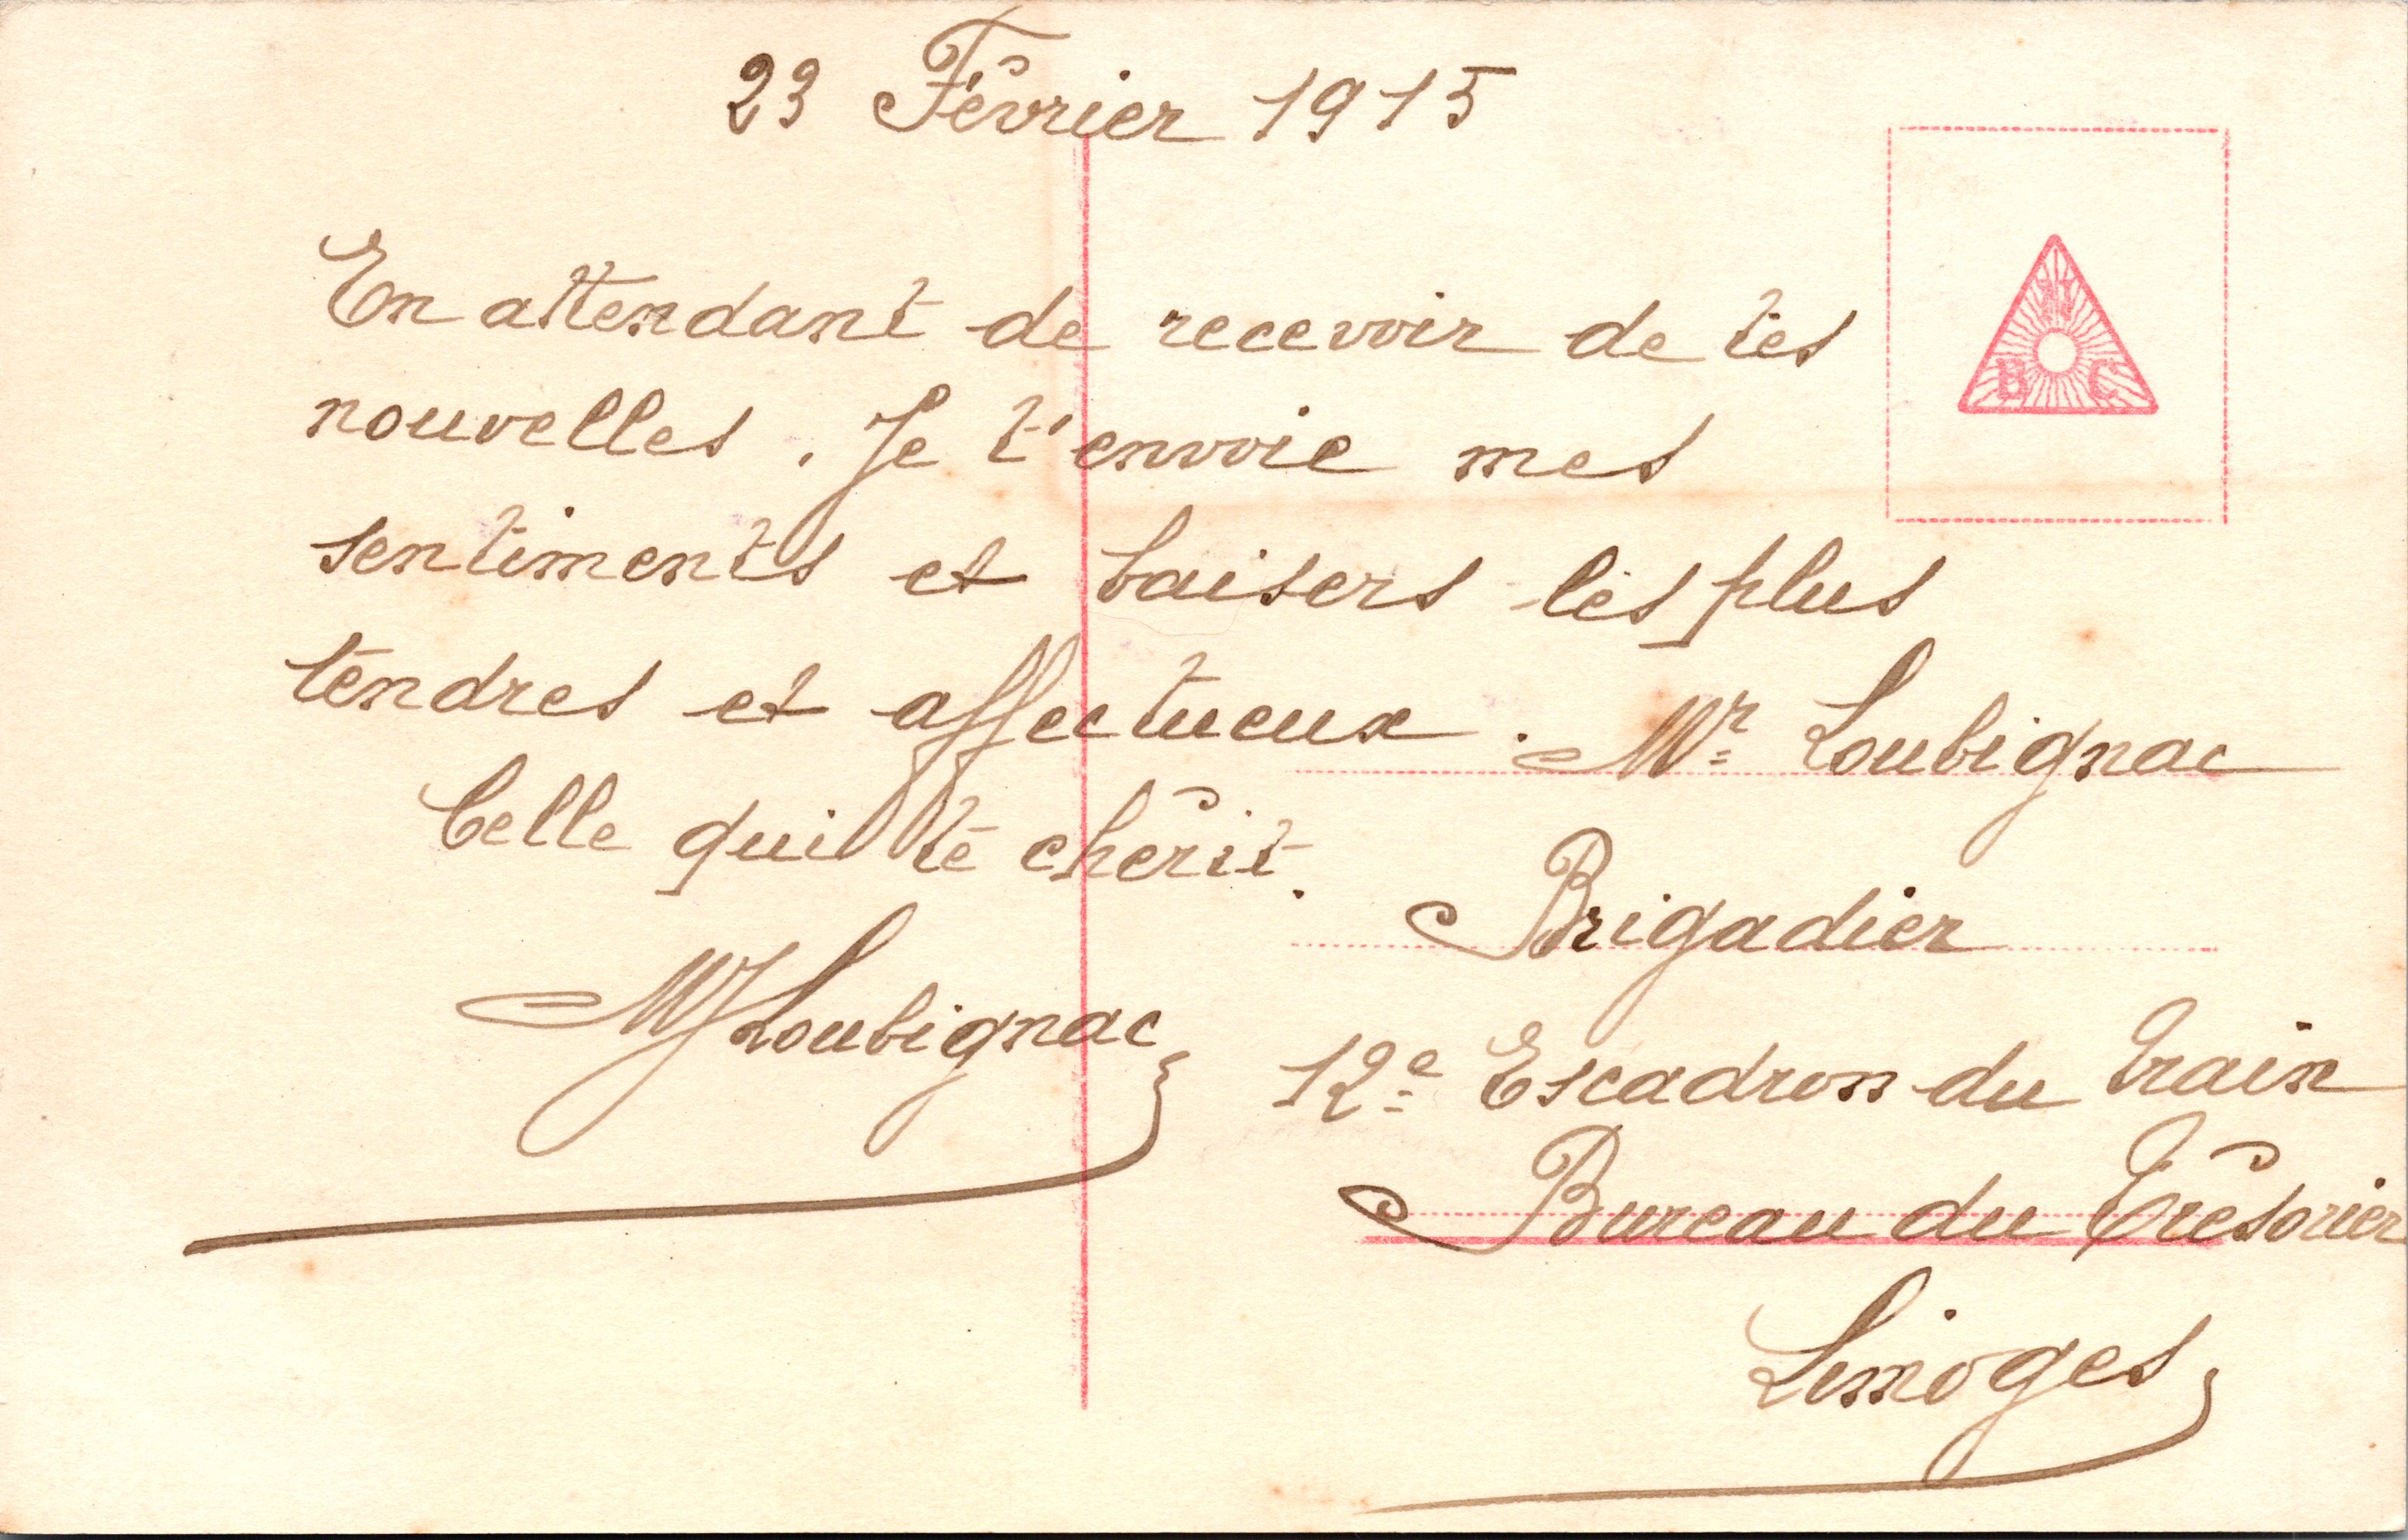 23 Février 1915
En attendant de recevoir de tes
nouvelles. Je t'envoie mes
sentiments et baisers les plus
tendres et affectueux.
Celle qui te chérit.
MJLoubignac
Mr Loubignac
Brigadier
12e Escadron du Train
Bureau du Trésorier
Limoges
B C